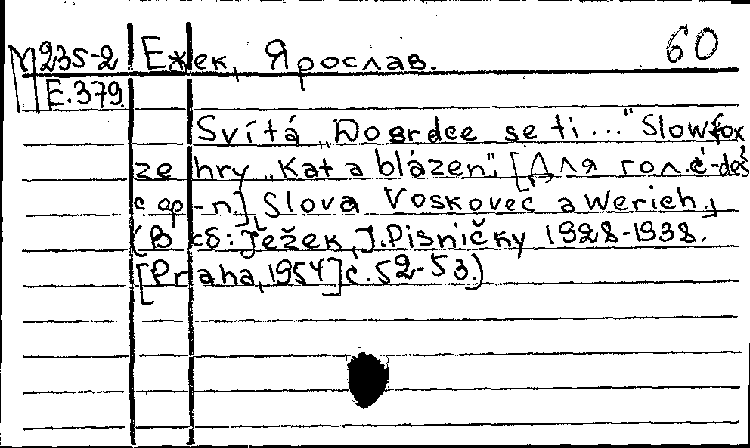 М235-2 Ежек, Ярослав. 60
Е.379
Svítá „Do srdce se ti..." Slowfox
ze hry „Kat a blázen". [Для гол. с
с ор-п], Slova Voskovec a Werich,
(В сб: Ježek, J. Pisničky 1928-1938.
[Praha, 1954] с. 52-53.)